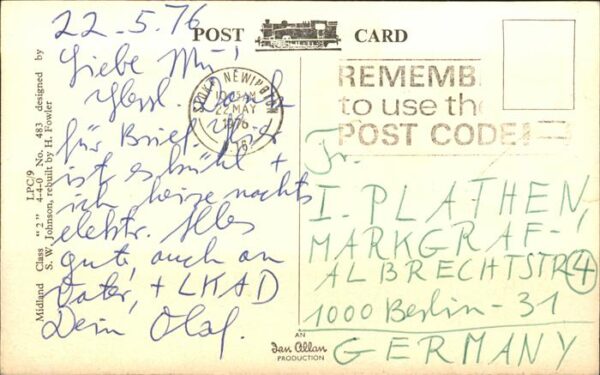 22.5.76
Liebe Mu,
Herzl. Dank
für Brief. Hier
ist es kühl +
ich heize nachts
elektr. Alles
gute, auch an
Vater, + LKAD
Dein Olaf.
POST CARD
STOKE NEWINGTON
22 MAY
1976
REMEMB
to use the
POST CODE
Fr.
I. PLATHEN,
MARKGRAF-
ALBRECHTSTR 4
1000 Berlin-31
GERMANY
AN
Ian Allan
PRODUCTION
LPC/9
Midland Class "2" 4-4-0 No. 483 designed by
S. W. Johnson, rebuilt by H. Fowler